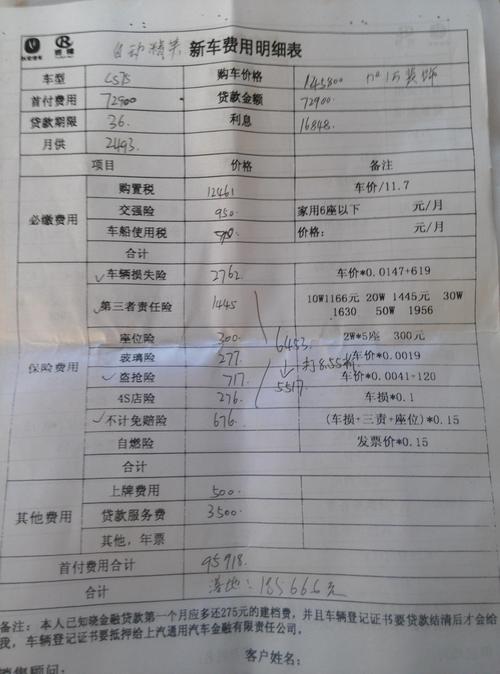 长安汽车
自动精英 新车费用明细表
车型 CS75 购车价格 145800
首付费用 72900 贷款金额 72900
贷款期限 36. 利息 16848.
月供 2493.
项目 价格 备注
必缴费用
购置税 12461 车价/11.7
交强险 950. 家用6座以下 元/月
车船使用税 价格: 元/月
合计
保险费用
✓车辆损失险 2762 车价*0.0147+619
✓第三者责任险 1445 10W1166元 20W 1445元 30W
1630 50W 1956
座位险 300 2W*5座 300元
6453.
玻璃险 277. 车价*0.0019
打8.55折
✓盗抢险 717 车价*0.0041+120
5517
4S店险 276 车损*0.1
✓不计免赔险 676 (车损+三责+座位)*0.15
自燃险 发票价*0.15
合计
其他费用
上牌费用 500
贷款服务费 3500.
其他,年票
首付费用合计 95918.
合计 落地:185666元
备注:本人已知晓金融贷款第一个月应多还275元的建档费,并且车辆登记证书要贷款结清后才会给
我,车辆登记证书要抵押给上汽通用汽车金融有限责任公司。
客户姓名:
销售顾问: